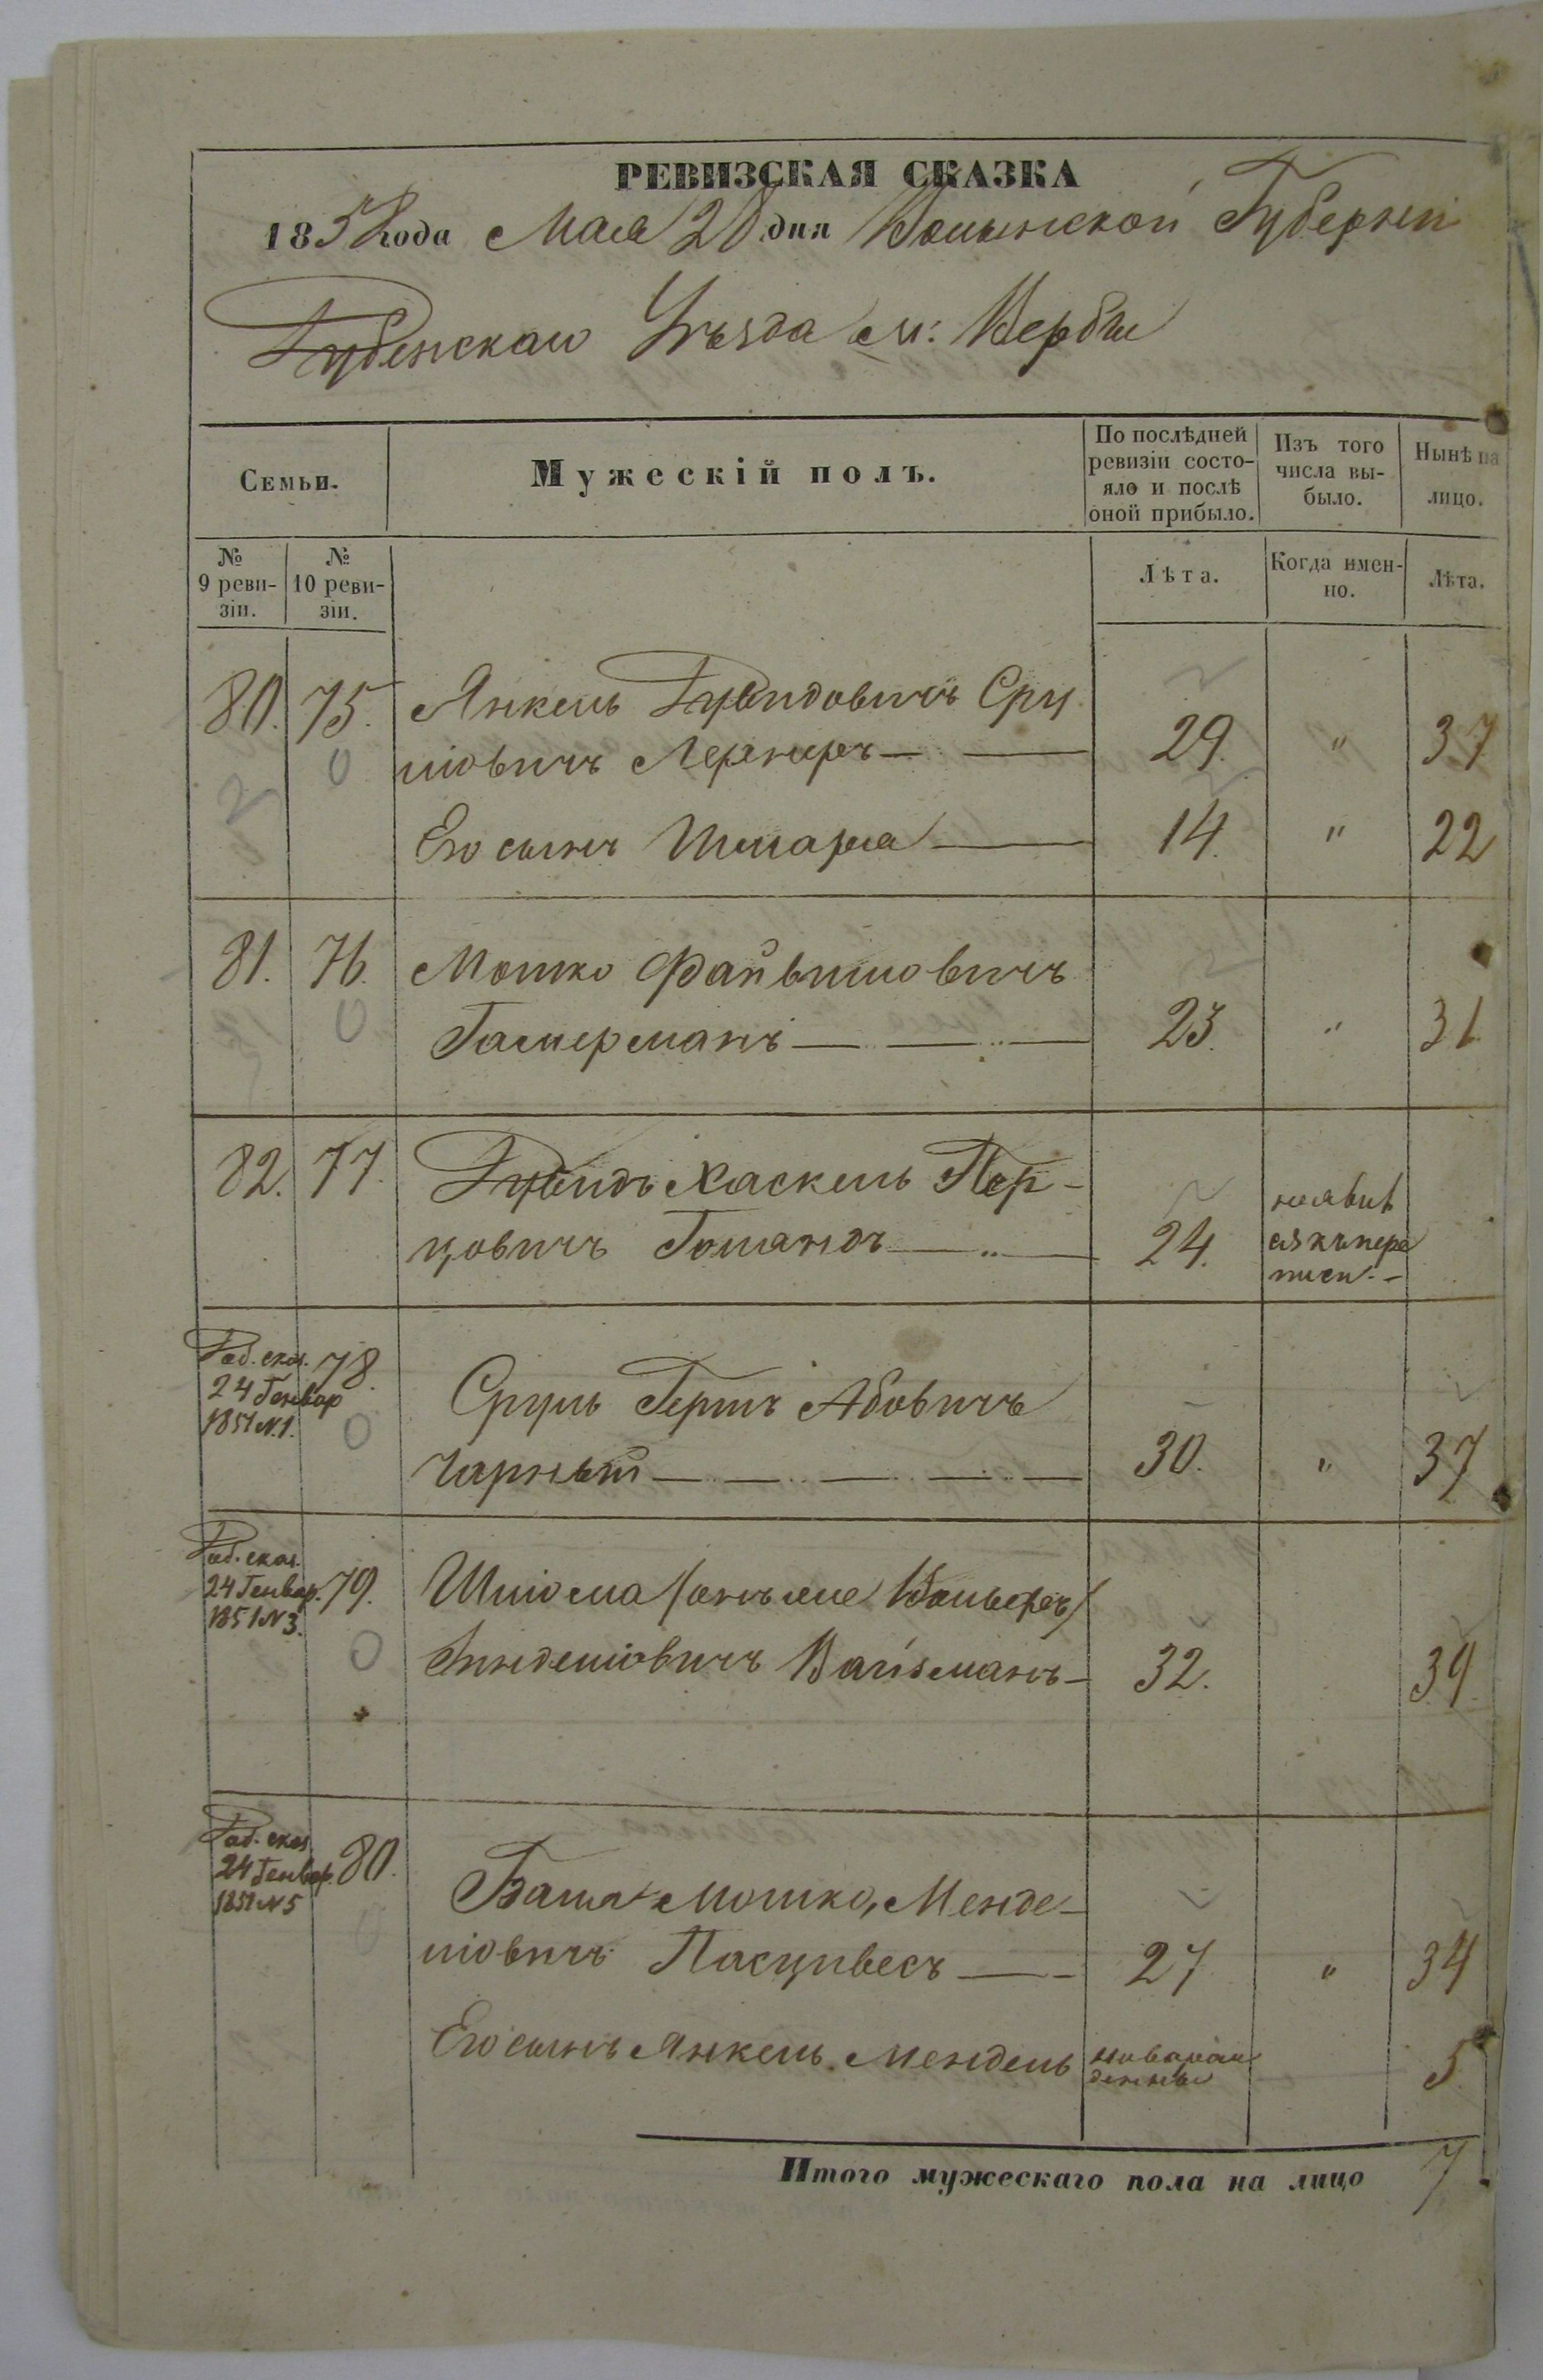 РЕВИЗСКАЯ СКАЗКА
1858 года Мая 20 дня Волынской Губерніи
Дубенскаго Уѣзда м: Вербы
Семьи.
Мужескій полъ.
По послѣдней ревизіи состо-
яло и послѣ
оной прибыло.
Изъ того
числа вы-
было.
Нынѣ на
лицо.
№
9 реви-
зіи.
№
10 реви-
зіи.
Лѣта.
Когда имен-
но.
Лѣта.
80. 75. Янкель Дувидовичъ Сру
0 лювичъ Лернеръ 29. " 37
Его сынъ Шмаря 14. " 22
81. 76. Мошко Файвишовичъ
0 Гамерманъ 23. " 31
82. 77. Дувидъ Хаскель Пер-
цовичъ Гошандъ 24.
неявив
ся къ пере
писи.-
Доб. сказ. 78.
24 Генвар
1851 N.1. 0
Сруль Гершъ Абовичъ
Чарный 30. " 37
Доб. сказ.
24 Генвар. 79.
1851 N 3.
0
Шліома /онъ же Вольферъ/
Линделіовичъ Вайзманъ 32. 39.
Доб. сказ
24 Генвар. 80.
1851 N 5
0
Башя Мошко, Менде-
ліовичъ Пасцивесъ 27 " 34
Его сынъ Янкель Мендель
новорож
денный
5
Итого мужескаго пола на лицо 7.